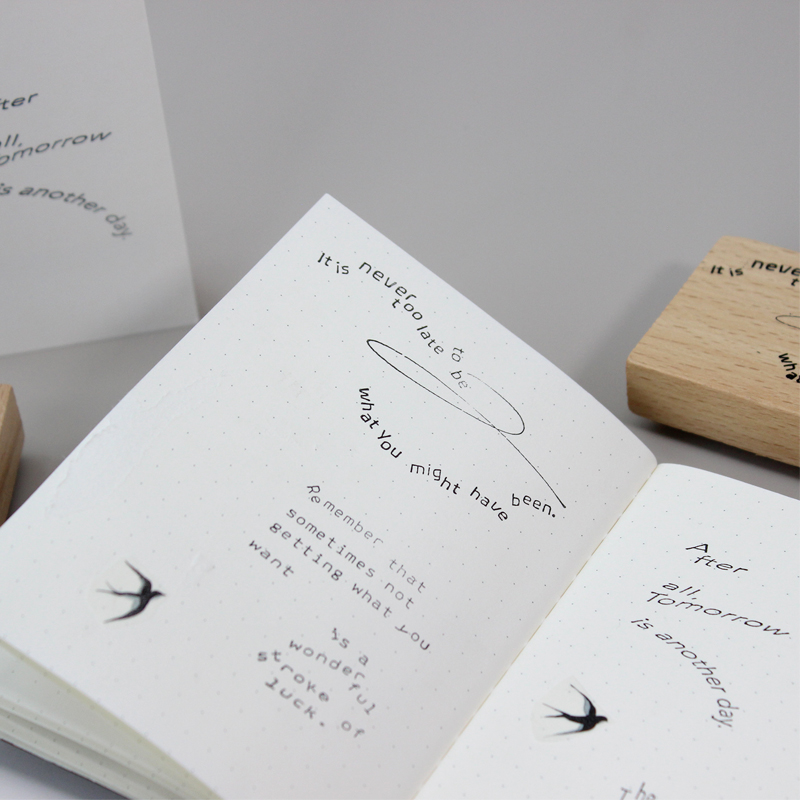 fter
ll,
omorrow
is another day.
It is never
too late to be
what you might have been.
Remember that
sometimes not
getting what you
want
is a
wonderful
stroke of
luck.
It is neve
t
wha
After
all,
Tomorrow
is another day.
The